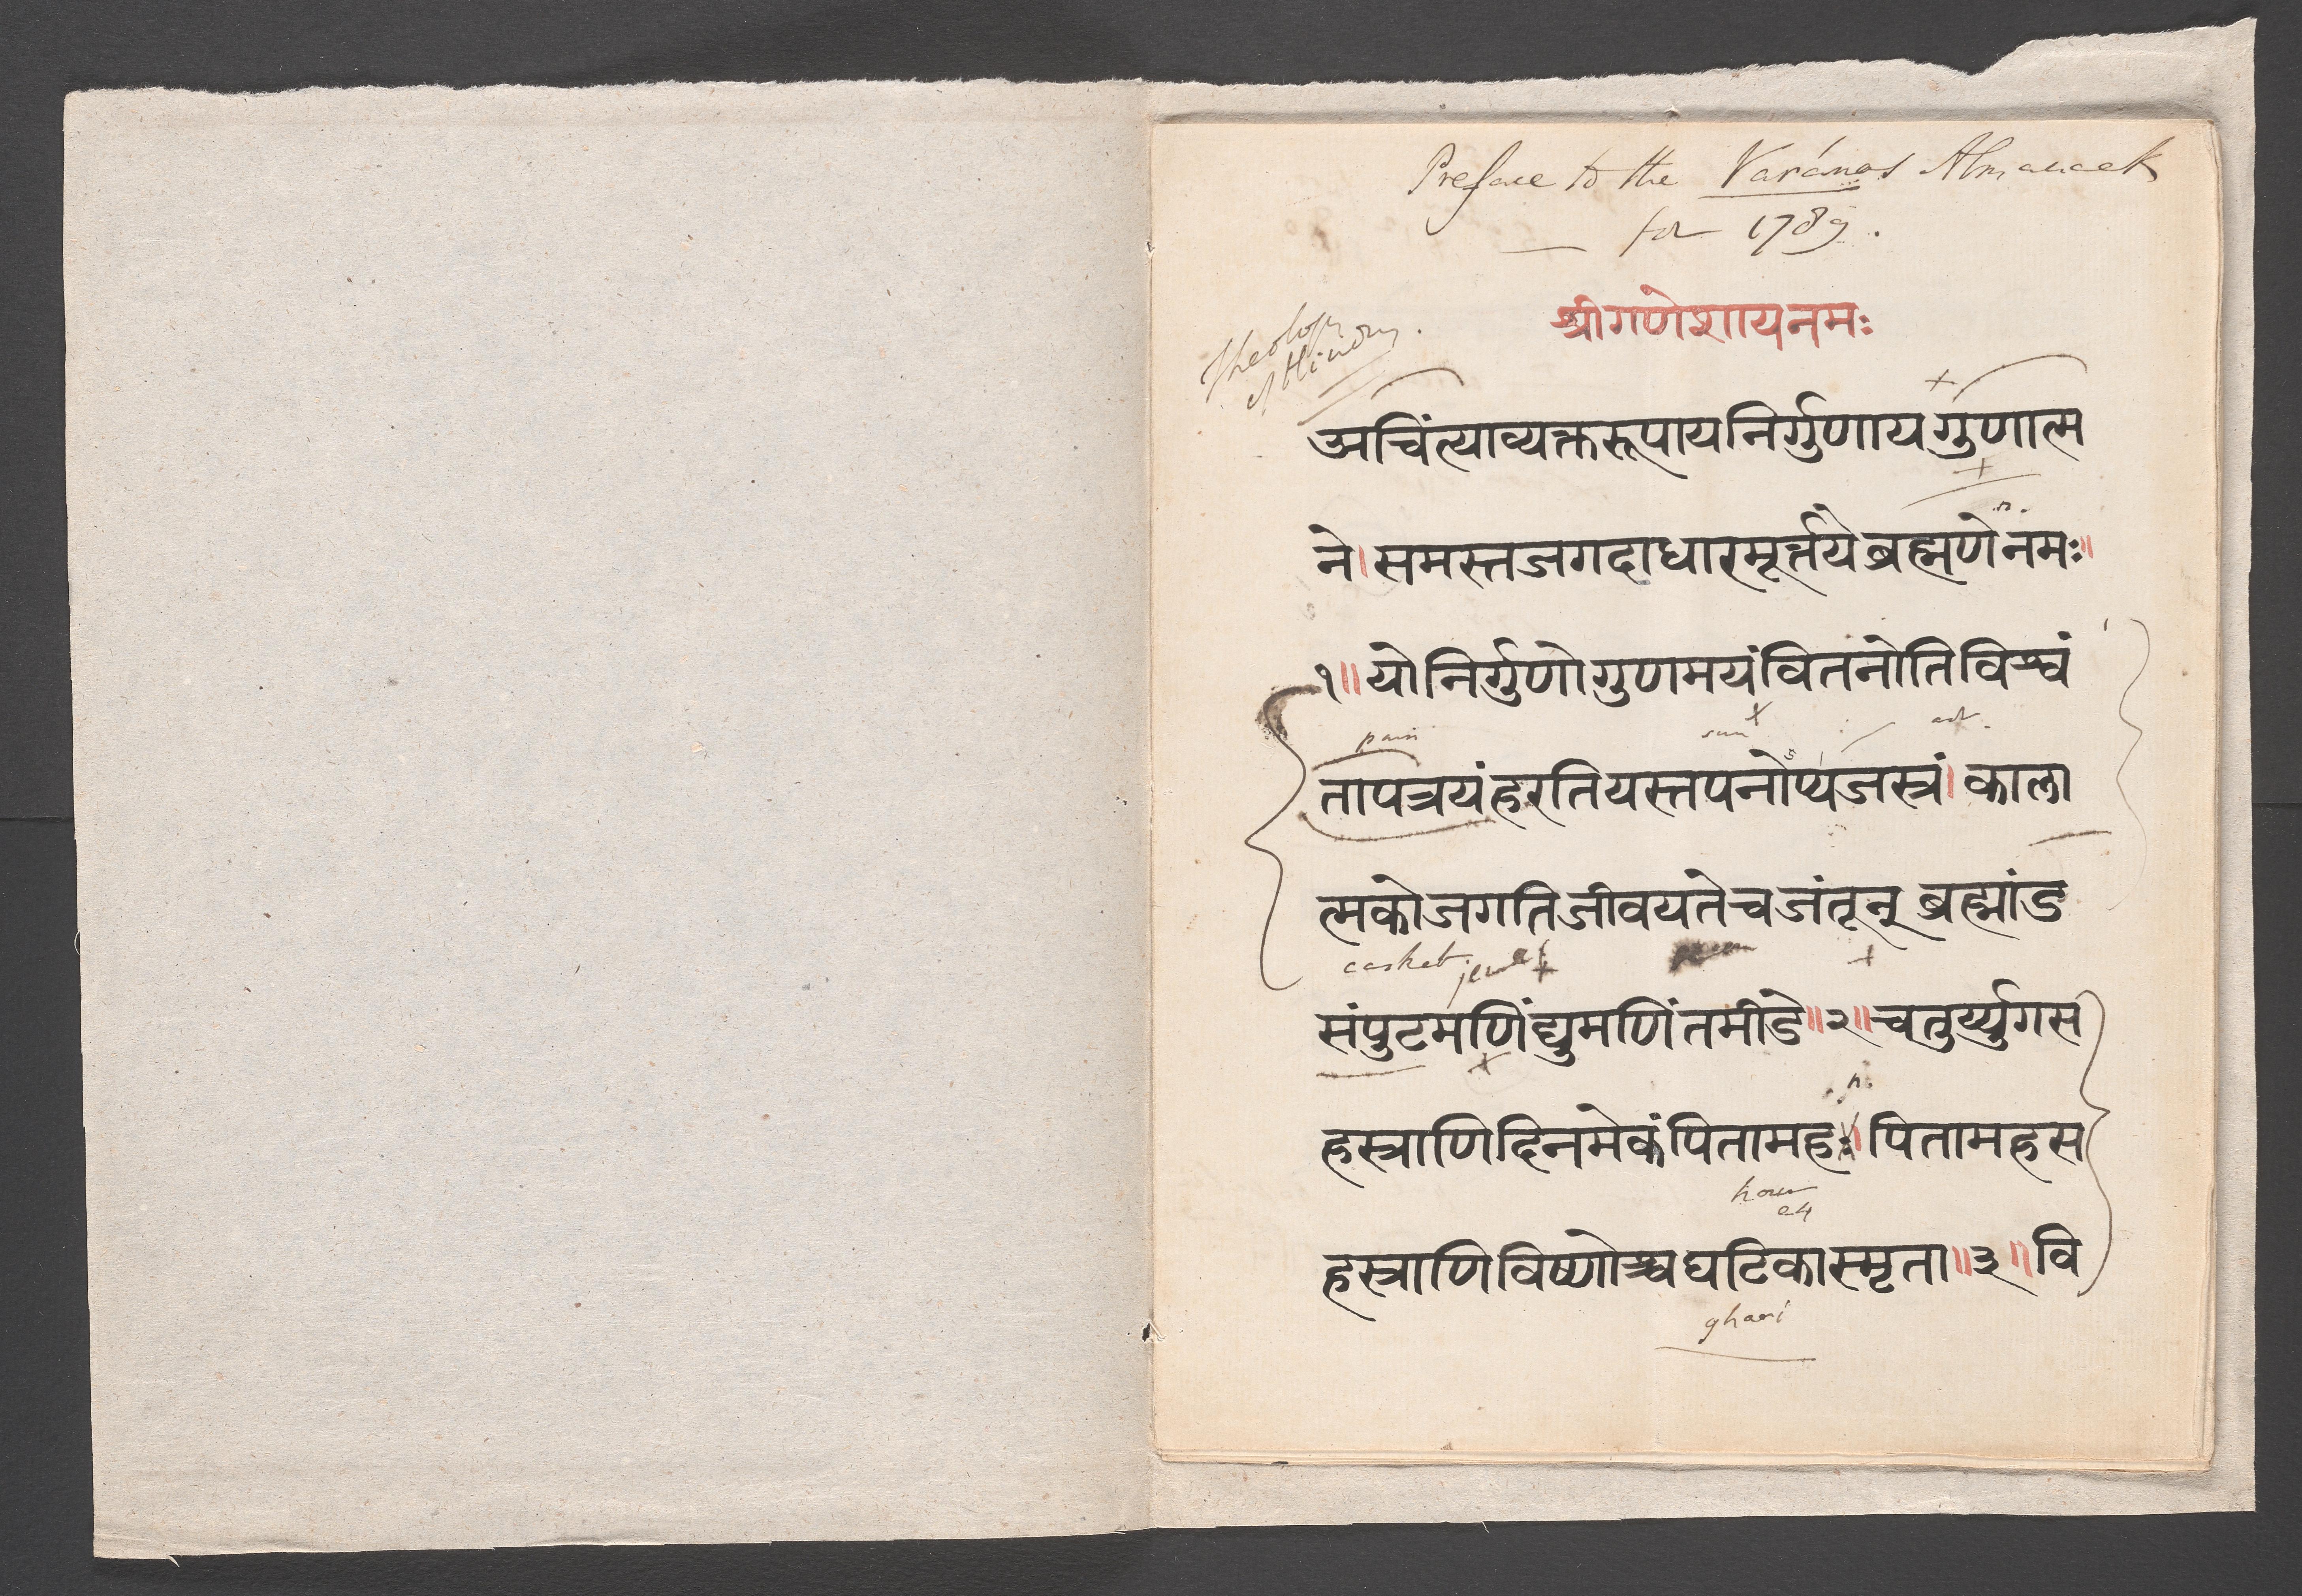 Preface to the Varánas Almanack
for 1789.
श्रीगणेशायनमः
Theology
of Hindoos.
अचिंत्याव्यक्तरूपायनिर्गुणायगुणात्म
n.
ने।समस्तजगदाधारमूर्त्तयेब्रह्मणेनमः॥
१॥योनिर्गुणोगुणमयंवितनोतिविश्वं
pain sun
तापत्रयंहरतियस्तपनोप्यजस्त्रं।काला
त्मकोजगतिजीवयतेचजंतून् ब्रह्मांड
casket. jewel
संपुटमणिंद्युमणिंतमीडे॥२॥चतुर्य्युगस
n.
हस्त्राणिदिनमेकंपितामहः।पितामहस
hour
24
हस्त्राणिविष्णोश्चघटिकास्मृता॥३॥वि
ghari